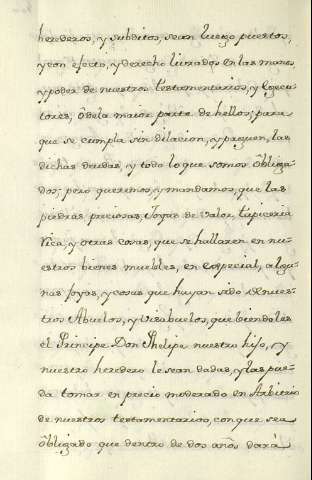 herederos, y subditos, sean luego puestos,
y con efecto, y derecho librados en las manos
y poder de nuestros testamentarios, y Egecu-
tores, ò dela maior parte de hellos, para
que se cumpla sin dilacion, y paguen, las
dichas deudas, y todo lo que somos òbliga-
dos; pero queremos, y mandamos, que las
piedras preciosas, Joyas de valor, tapiceria
rica, y otras cosas, que se hallaren en nu-
estros bienes muebles, en especial, algu-
nas Joyas, y cosas que huyan sido de nues-
tros Abuelos, y Visabuelos, que biendolas
el Principe Don Phelipe nuestro hijo, y
nuestro heredero le sean dadas, y las pue-
da tomar en precio moderado en Arbitrio
de nuestros testamentarios, con que sea
òbligado que dentro de dos años dará